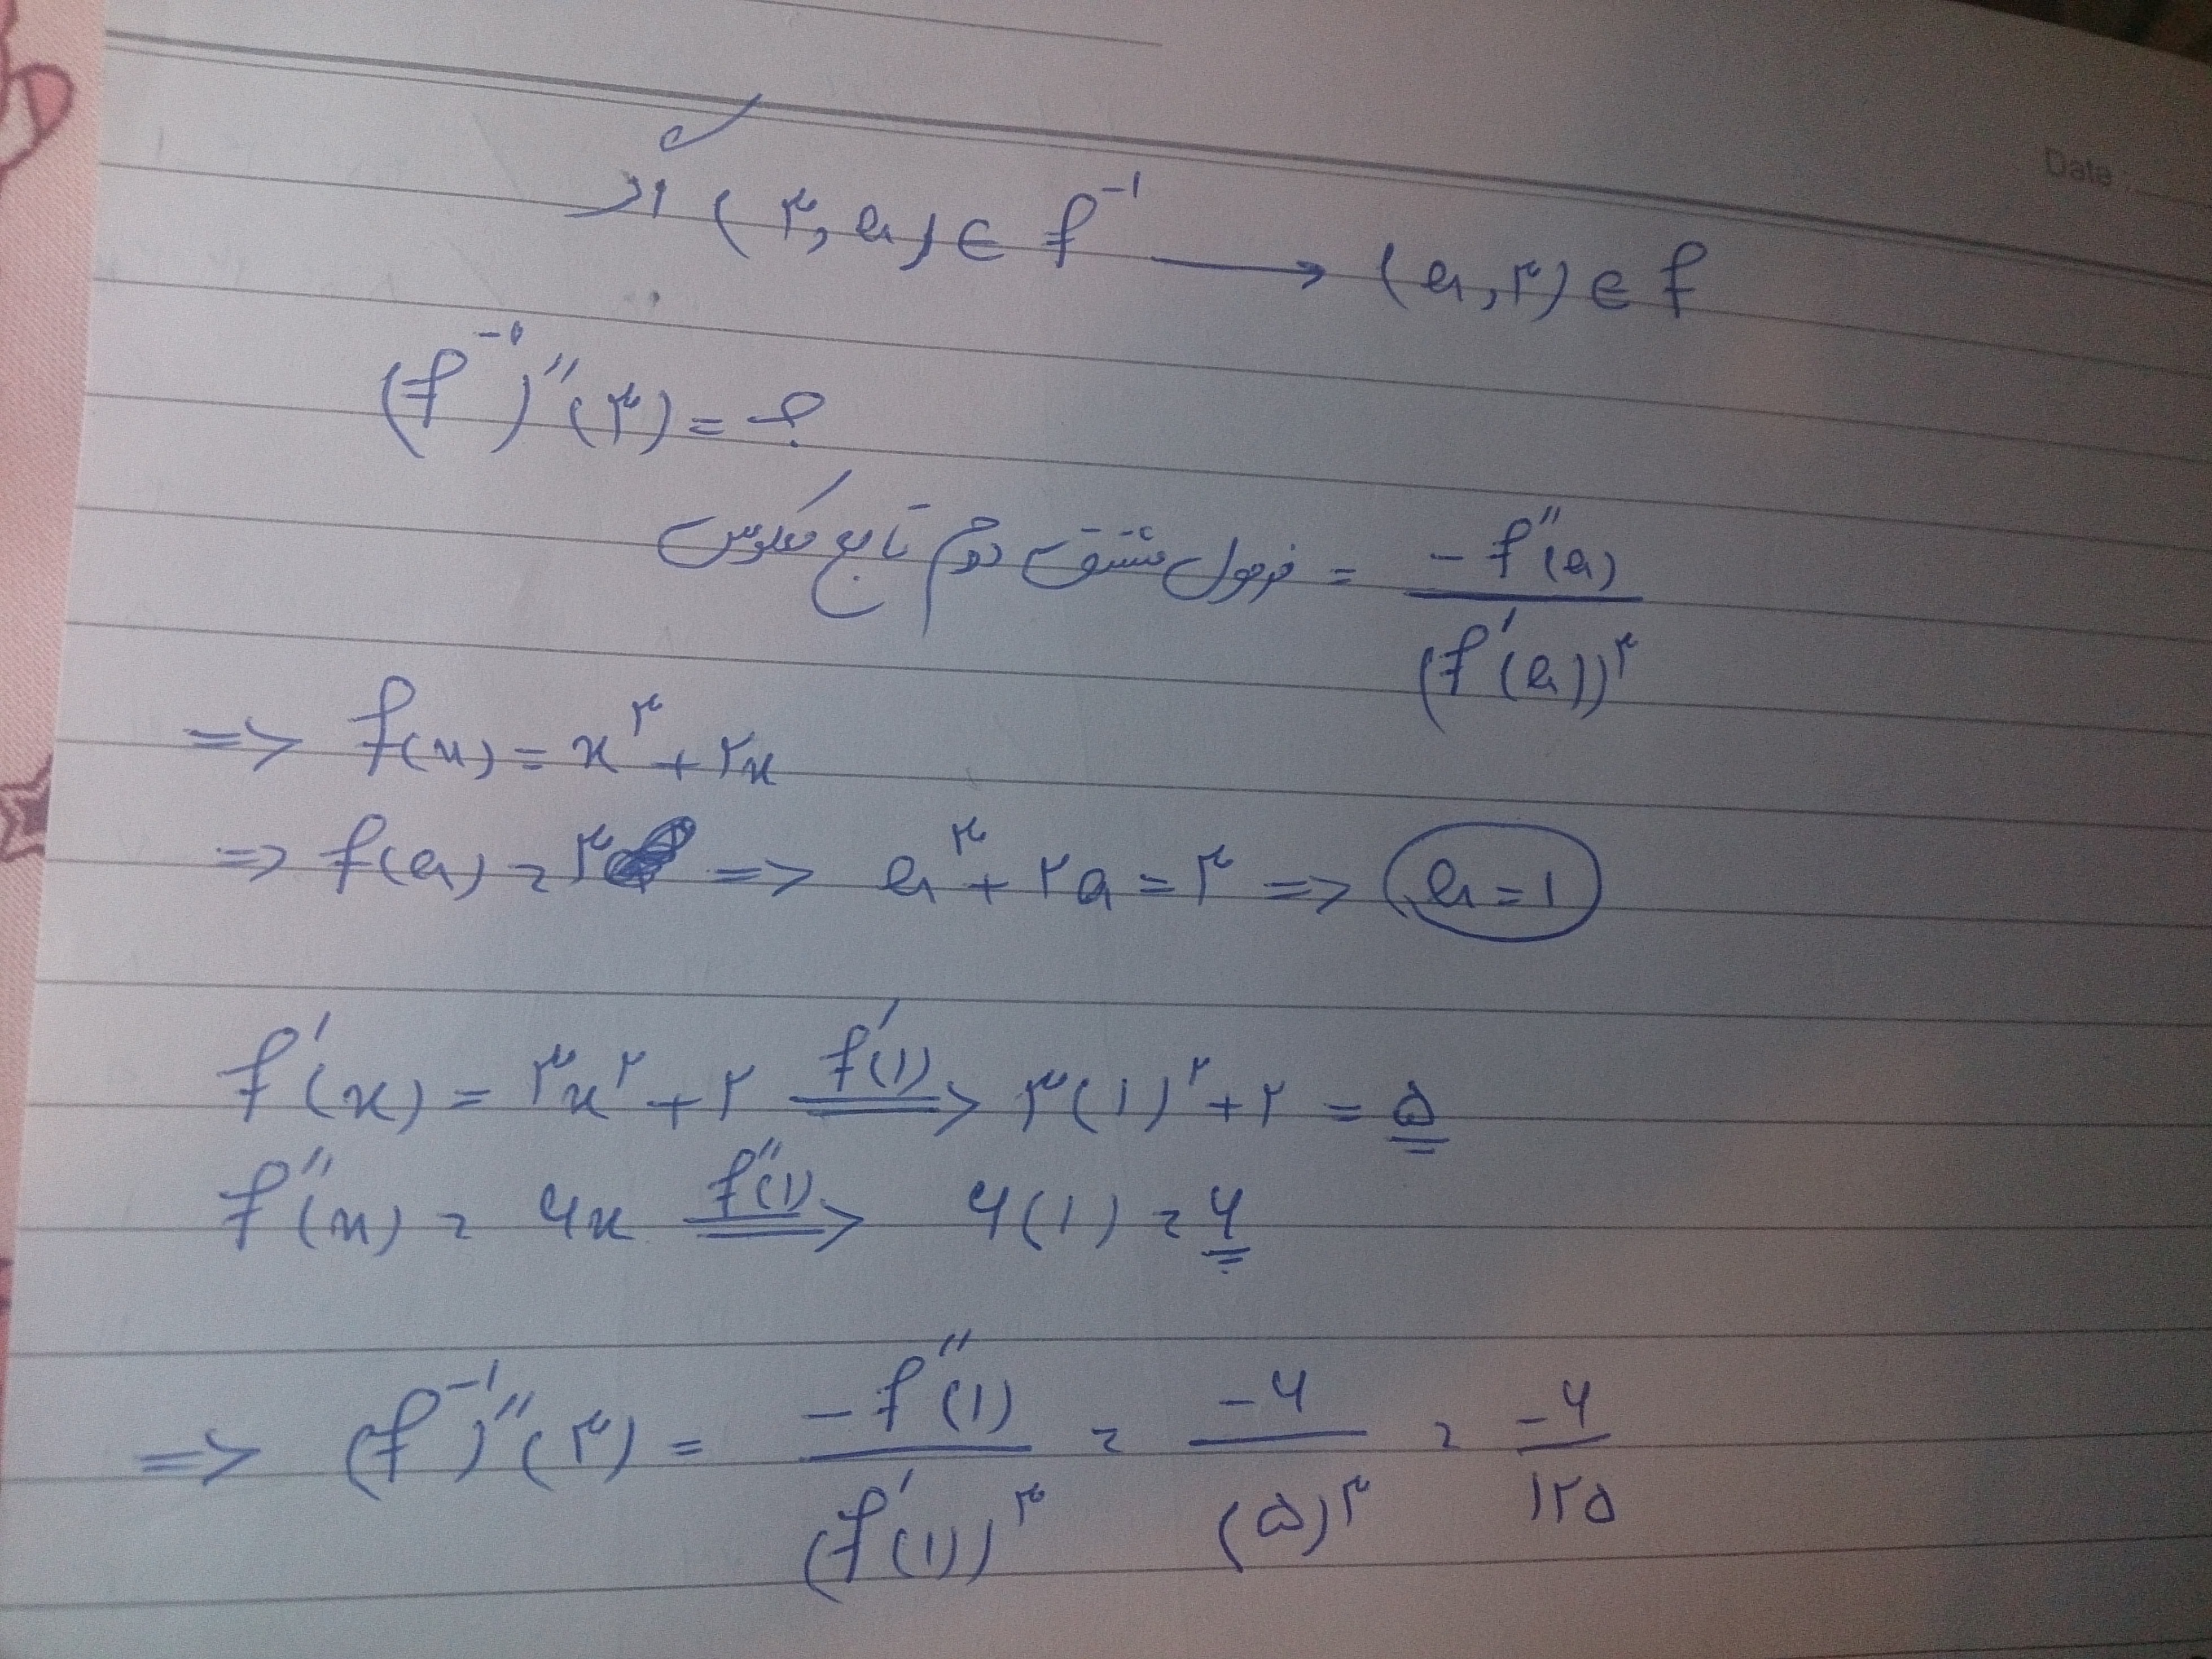 Date:
اگر (۳, a) ∈ f⁻¹ ⟶ (a, ۳) ∈ f
(f⁻¹)″(۳) = ?
فرمول مشتق دوم تابع معکوس = -f″(a) / (f′(a))³
=> f(x) = x³ + ۲x
=> f(a) = ۳ => a³ + ۲a = ۳ => a = ۱
f′(x) = ۳x² + ۲ =f′(۱)=> ۳(۱)² + ۲ = ۵
f″(x) = ۶x =f″(۱)=> ۶(۱) = ۶
=> (f⁻¹)″(۳) = -f″(۱) / (f′(۱))³ = -۶ / (۵)³ = -۶ / ۱۲۵